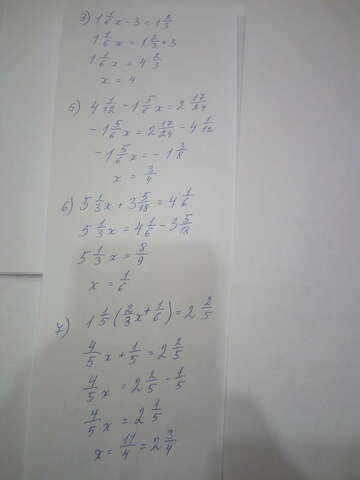 3) 1 1/6 x - 3 = 1 2/3
1 1/6 x = 1 2/3 + 3
1 1/6 x = 4 2/3
x = 4
5) 4 1/12 - 1 5/6 x = 2 17/24
- 1 5/6 x = 2 17/24 - 4 1/12
- 1 5/6 x = - 1 3/8
x = 3/4
6) 5 1/3 x + 3 5/18 = 4 1/6
5 1/3 x = 4 1/6 - 3 5/18
5 1/3 x = 8/9
x = 1/6
7) 1 1/5 ( 2/3 x + 1/6 ) = 2 2/5
4/5 x + 1/5 = 2 2/5
4/5 x = 2 2/5 - 1/5
4/5 x = 2 1/5
x = 11/4 = 2 3/4